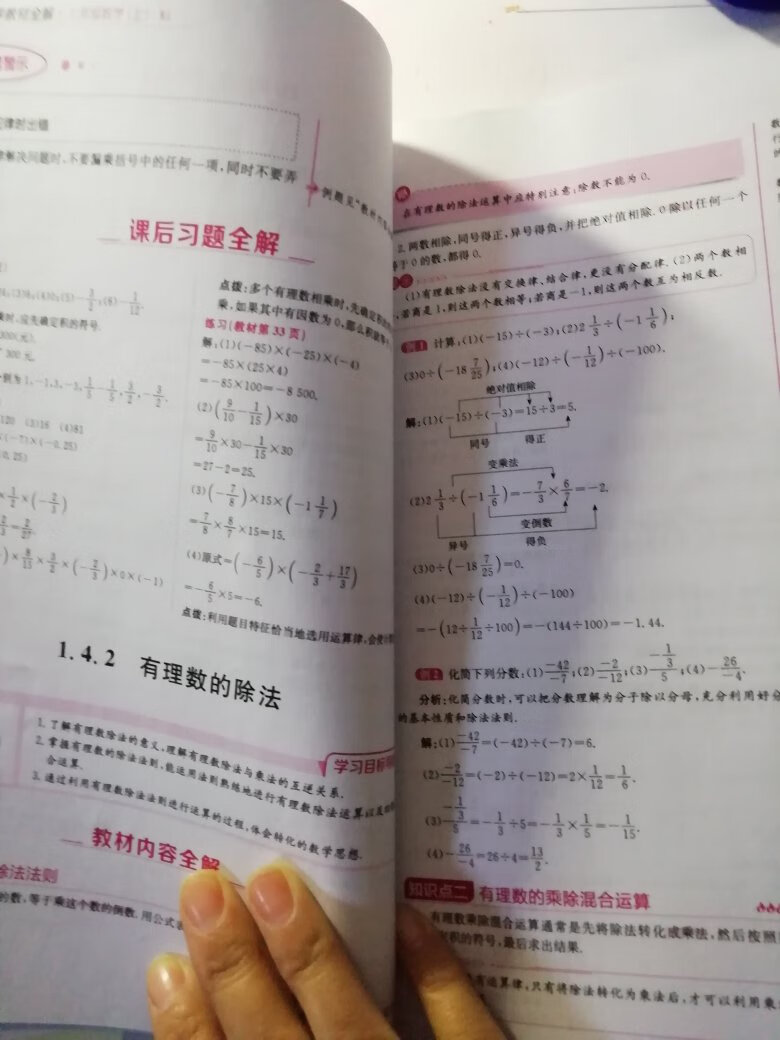 律时出错
解决问题时,不要漏乘括号中的任何一项,同时不要弄
课后习题全解
乘时,应先确定积的符号.
300元.
点拨:多个有理数相乘时,先确定积的
乘,如果其中有因数为0,那么积就等
练习(教材第33页)
解:(1)(-85)×(-25)×(-4)
=-85×(25×4)
=-85×100=-8 500.
(2)(9/10-1/15)×30
=9/10×30-1/15×30
=27-2=25.
(3)(-7/8)×15×(-1 1/7)
=7/8×8/7×15=15.
(4)原式=(-6/5)×(-2/3+17/3)
=-6/5×5=-6.
点拨:利用题目特征恰当地选用运算律,会使
1.4.2 有理数的除法
学习目标
1.了解有理数除法的意义,理解有理数除法与乘法的互逆关系.
2.掌握有理数的除法法则,能运用法则熟练地进行有理数除法运算以及
合运算.
3.通过利用有理数除法法则进行运算的过程,体会转化的数学思想.
教材内容全解
除法法则
的数,等于乘这个数的倒数.用公式
在有理数的除法运算中应特别注意:除数不能为0.
2.两数相除,同号得正,异号得负,并把绝对值相除.0除以任何一个
等于0的数,都得0.
(1)有理数除法没有交换律、结合律,更没有分配律.(2)两个数相
,若商是1,则这两个数相等;若商是-1,则这两个数互为相反数.
例1 计算:(1)(-15)÷(-3);(2)2 1/3÷(-1 1/6);
(3)0÷(-18 7/25);(4)(-12)÷(-1/12)÷(-100).
绝对值相除
解:(1)(-15)÷(-3)=15÷3=5.
同号 得正
变乘法
(2)2 1/3÷(-1 1/6)=-7/3×6/7=-2.
变倒数
异号 得负
(3)0÷(-18 7/25)=0.
(4)(-12)÷(-1/12)÷(-100)
=-(12÷1/12÷100)=-(144÷100)=-1.44.
例2 化简下列分数:(1)-42/-7;(2)-2/-12;(3)-1/3/5;(4)-26/-4.
分析:化简分数时,可以把分数理解为分子除以分母,充分利用好分
的基本性质和除法法则.
解:(1)-42/-7=(-42)÷(-7)=6.
(2)-2/-12=(-2)÷(-12)=2×1/12=1/6.
(3)-1/3/5=-1/3÷5=-1/3×1/5=-1/15.
(4)-26/-4=26÷4=13/2.
知识点二 有理数的乘除混合运算
有理数乘除混合运算通常是先将除法转化成乘法,然后按照
定积的符号,最后求出结果.
有运算律,只有将除法转化为乘法后,才可以利用乘